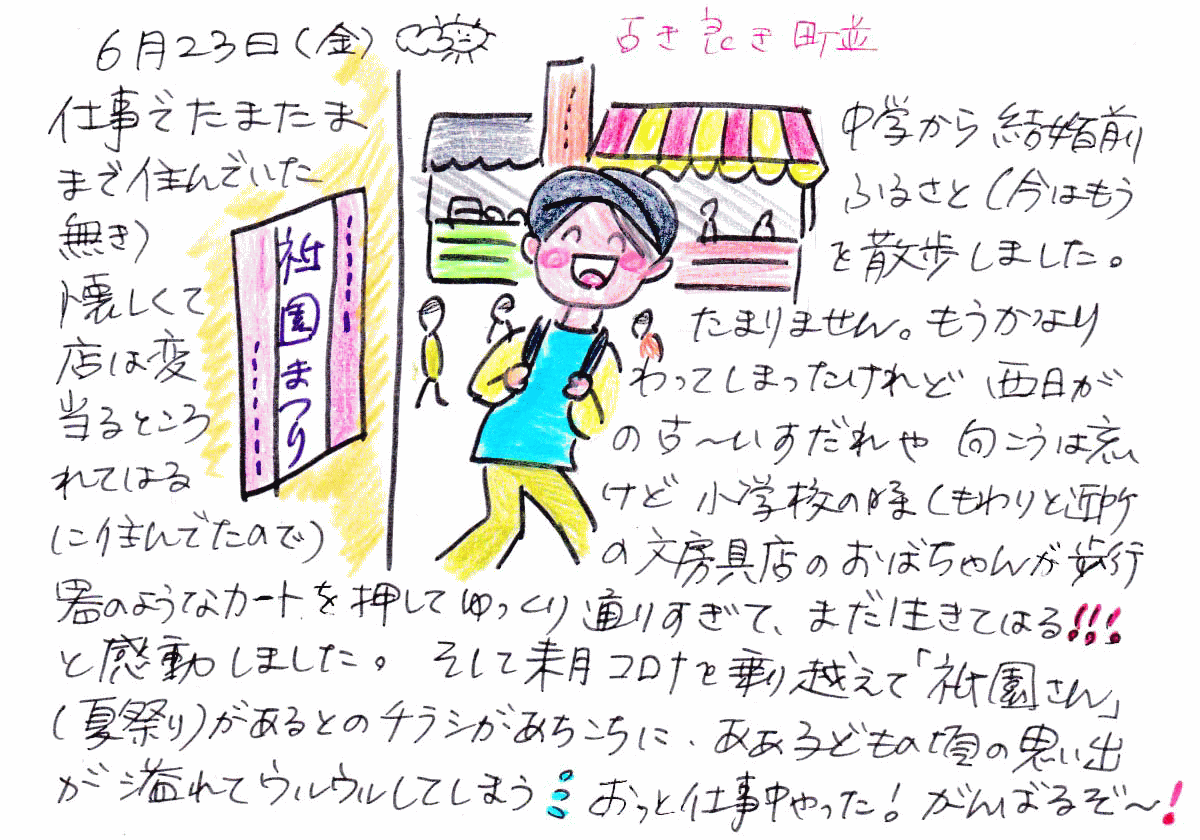 6月23日(金) 古き良き町並
仕事でたまたま 中学から結婚前
まで住んでいた ふるさと(今はもう
無き) を散歩しました。
懐しくて たまりません。もうかなり
店は変 わってしまったけれど 西日が
当るところ の古〜いすだれや 向こうは忘
れてはる けど 小学校の時(もわりと近所
に住んでたので) の文房具店のおばちゃんが歩行
器のようなカートを押してゆっくり通りすぎて、まだ生きてはる!!!
と感動しました。 そして来月コロナを乗り越えて「祇園さん」
(夏祭り)があるとのチラシがあちこちに、ああ子どもの頃の思い出
が溢れてウルウルしてしまう おっと仕事中やった! がんばるぞ〜!
祇園まつり